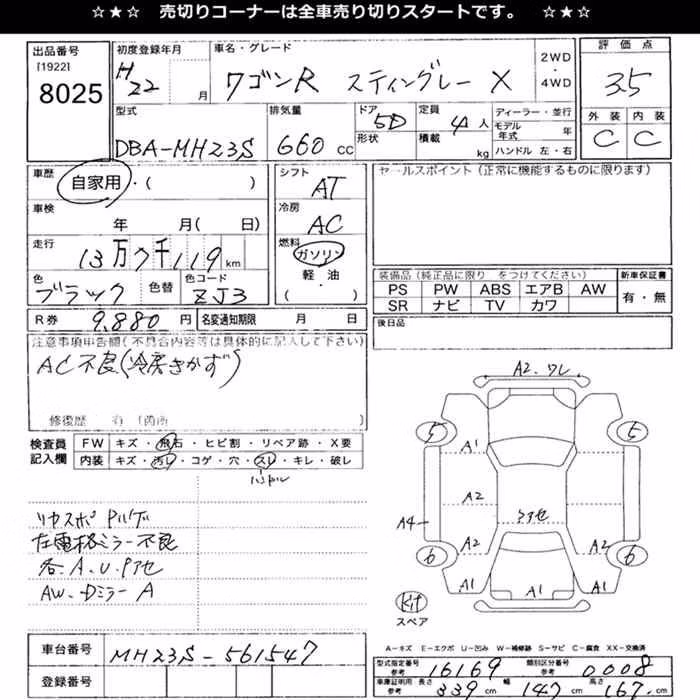 ☆★☆ 売切りコーナーは全車売り切りスタートです。 ☆★☆
出品番号
[1922]
8025
初度登録年月
H22 月
車名・グレード
ワゴンR スティングレー X
2WD
・
4WD
評価点
3.5
型式
DBA-MH23S
排気量
660 cc
ドア
5D
形状
定員
4人
積載 kg
ディーラー・並行
モデル年式 年
ハンドル 左・右
外装 内装
C C
車歴
自家用・( )
車検
年 月( 日)
走行
13万7千119 km
色
ブラック
色替
色コード
ZJ3
R券
9,880 円
名変通知期限 月 日
シフト
AT
冷房
AC
燃料
ガソリン
軽・油
( )
セールスポイント(正常に機能するものに限ります)
装備品(純正品に限り をつけてください)
PS PW ABS エアB AW
SR ナビ TV カワ
新車保証書
有・無
後日品
注意事項申告欄(不具合内容等は具体的に記入して下さい)
AC不良(冷房きかず)
修復歴 有 (箇所
検査員
記入欄
FW キズ・飛石・ヒビ割・リペア跡・X要
内装 キズ・汚レ・コゲ・穴・スレ・キレ・破レ
ハンドル
リヤスポ
左電格ミラー不良
各A.U.Pアセ
AW.Dミラー A
A2.ワレ
5 5
A1
A2
A4
アセ
6 6
A2 A2
A1 A1 A1
Kit
スペア
A-キズ E-エクボ U-凹み W-補修跡 S-サビ C-腐食 XX-交換済
車台番号
MH23S-561547
登録番号
型式指定番号
参考
16169
類別区分番号
参考
0008
車庫証明用 長さ
参考
339 cm
幅
147 cm
高さ
167 cm